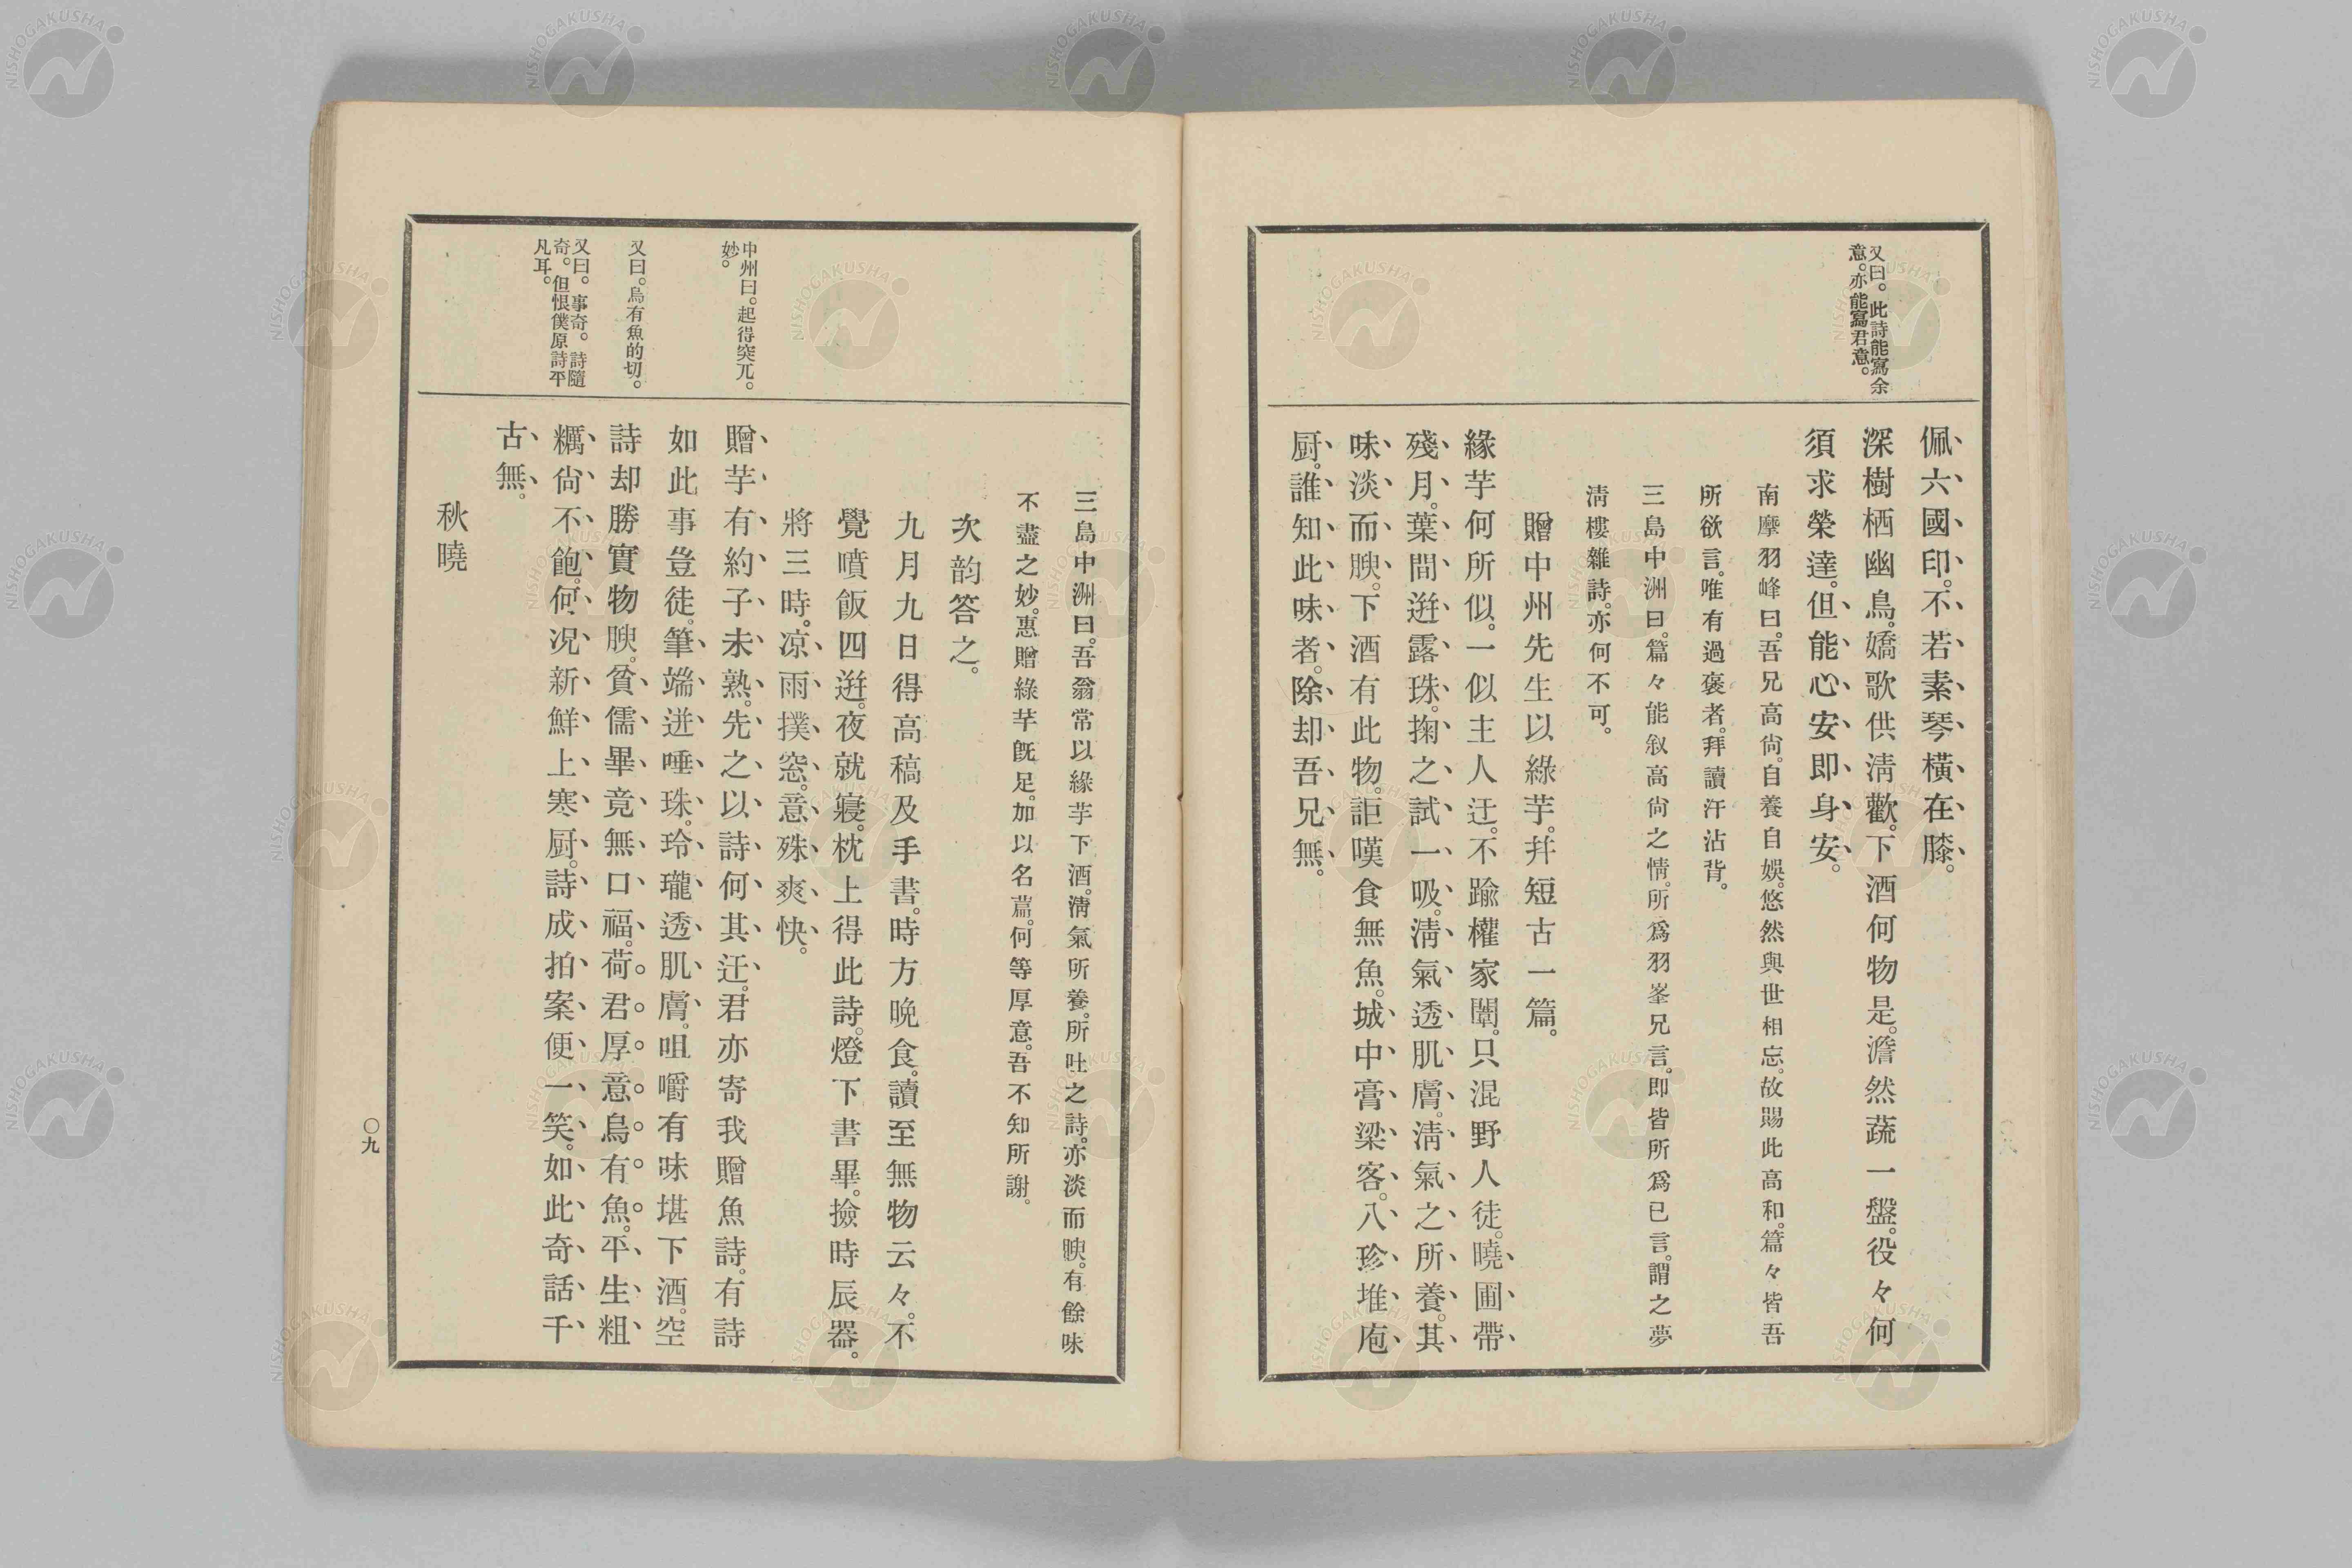 又曰。此詩能寫余
意。亦能寫君意。
佩六國印。不若素琴橫在膝。
深樹栖幽鳥。嬌歌供淸歡。下酒何物是。澹然蔬一盤。役々何
須求榮達。但能心安即身安。
南摩羽峰曰。吾兄高尙。自養自娛。悠然與世相忘。故賜此高和。篇々皆吾
所欲言。唯有過褒者。拜讀汗沾背。
三島中洲曰。篇々能叙高尙之情。所爲羽峯兄言。即皆所爲已言。謂之夢
淸樓雜詩。亦何不可。
贈中州先生以綠芋。幷短古一篇。
綠芋何所似。一似主人迂。不踰權家闥。只混野人徒。曉圃帶
殘月。葉間迸露珠。掬之試一吸。淸氣透肌膚。淸氣之所養。其
味淡而腴。下酒有此物。詎嘆食無魚。城中膏粱客。八珍堆庖
厨。誰知此味者。除却吾兄無。
中州曰。起得突兀。
妙。
又曰。烏有魚的切。
又曰。事奇。詩隨
奇。但恨僕原詩平
凡耳。
三島中洲曰。吾翁常以綠芋下酒。淸氣所養。所吐之詩。亦淡而腴。有餘味
不盡之妙。惠贈綠芋旣足。加以名篇。何等厚意。吾不知所謝。
次韵答之。
九月九日得高稿及手書。時方晩食。讀至無物云々。不
覺噴飯四迸。夜就寢。枕上得此詩。燈下書畢。撿時辰器。
將三時。凉雨撲窓。意殊爽快。
贈芋有約子未熟。先之以詩何其迂。君亦寄我贈魚詩。有詩
如此事豈徒。筆端迸唾珠。玲瓏透肌膚。咀嚼有味堪下酒。空
詩却勝實物腴。貧儒畢竟無口福。荷君厚意烏有魚。平生粗
糲尙不飽。何况新鮮上寒厨。詩成拍案便一笑。如此奇話千
古無。
秋曉
〇九
NISHOGAKUSHA